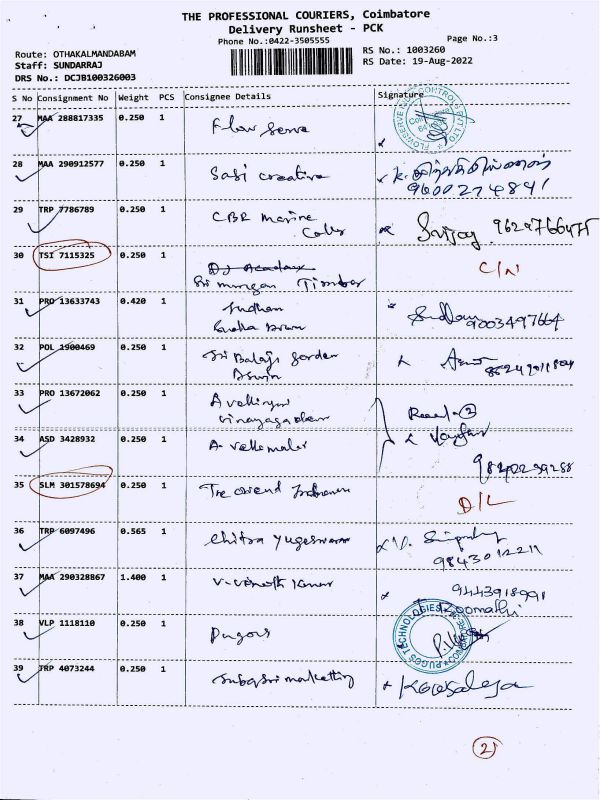 THE PROFESSIONAL COURIERS, Coimbatore
Delivery Runsheet - PCK
Phone No.:0422-3505555
Page No.:3
Route: OTHAKALMANDABAM
Staff: SUNDARRAJ
DRS No.: DCJB100326003
RS No.: 1003260
RS Date: 19-Aug-2022
S No Consignment No Weight PCS Consignee Details Signature
27 MAA 288817335 0.250 1 Flow Serve
28 MAA 290912577 0.250 1 Sasi Creative
9600274841
29 TRP 7786789 0.250 1 CBR Marine
30 TSI 7115325 0.250 1 C/N
Sri murugan Timber
31 PRO 13633743 0.420 1 Sudhan
9003497664
32 POL 1900469 0.250 1 Sri Balaji Garden
33 PRO 13672062 0.250 1
34 ASD 3428932 0.250 1
35 SLM 301578694 0.250 1 D/L
36 TRP 6097496 0.565 1 Chitra Yugeswaran
9843012211
37 MAA 290328867 1.400 1 V. Vinoth Kumar 9443918991
Boomathi
38 VLP 1118110 0.250 1 Puggs
PUGGS TECHNOLOGIES
39 TRP 4073244 0.250 1 Subasri marketting Kowsalya
2